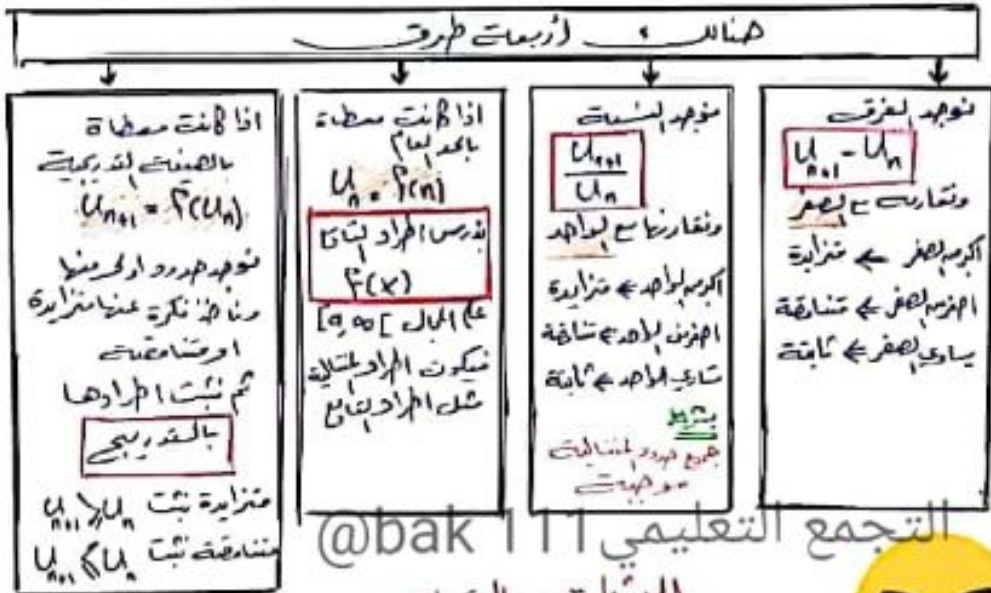 هنالك أربعة طرق
نوجد الفرق
Uₙ₊₁ - Uₙ
ونقارنه مع الصفر
اكبر من الصفر ← متزايدة
اصغر من الصفر ← متناقصة
يساوي الصفر ← ثابتة
نوجد النسبة
Uₙ₊₁ / Uₙ
ونقارنها مع الواحد
اكبر من الواحد ← متزايدة
اصغر من الواحد ← متناقصة
تساوي الواحد ← ثابتة
بشرط
جميع حدود المتتالية
موجبة
اذا كانت معطاة
بالحد العام
Uₙ = f(n)
ندرس اطراد التابع
f(x)
على المجال [0, ∞[
فيكون اطراد المتتالية
مثل اطراد التابع
اذا كانت معطاة
بالصيغة التدريجية
Uₙ₊₁ = f(Uₙ)
نوجد حدود اولى منها
وناخذ فكرة عنها متزايدة
او متناقصة
ثم نثبت اطرادها
بالتدريج
متزايدة نثبت Uₙ₊₁ ≥ Uₙ
متناقصة نثبت Uₙ₊₁ ≤ Uₙ
التجمع التعليمي @bak 111